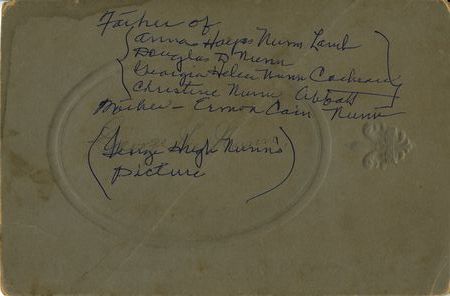 Father of
Anna Hays Nunn Land
Douglas D Nunn
Georgia Helen Nunn
Christine Nunn Abbott
Mother - Ermon Cain Nunn
(George Hugh Nunn's
Picture)